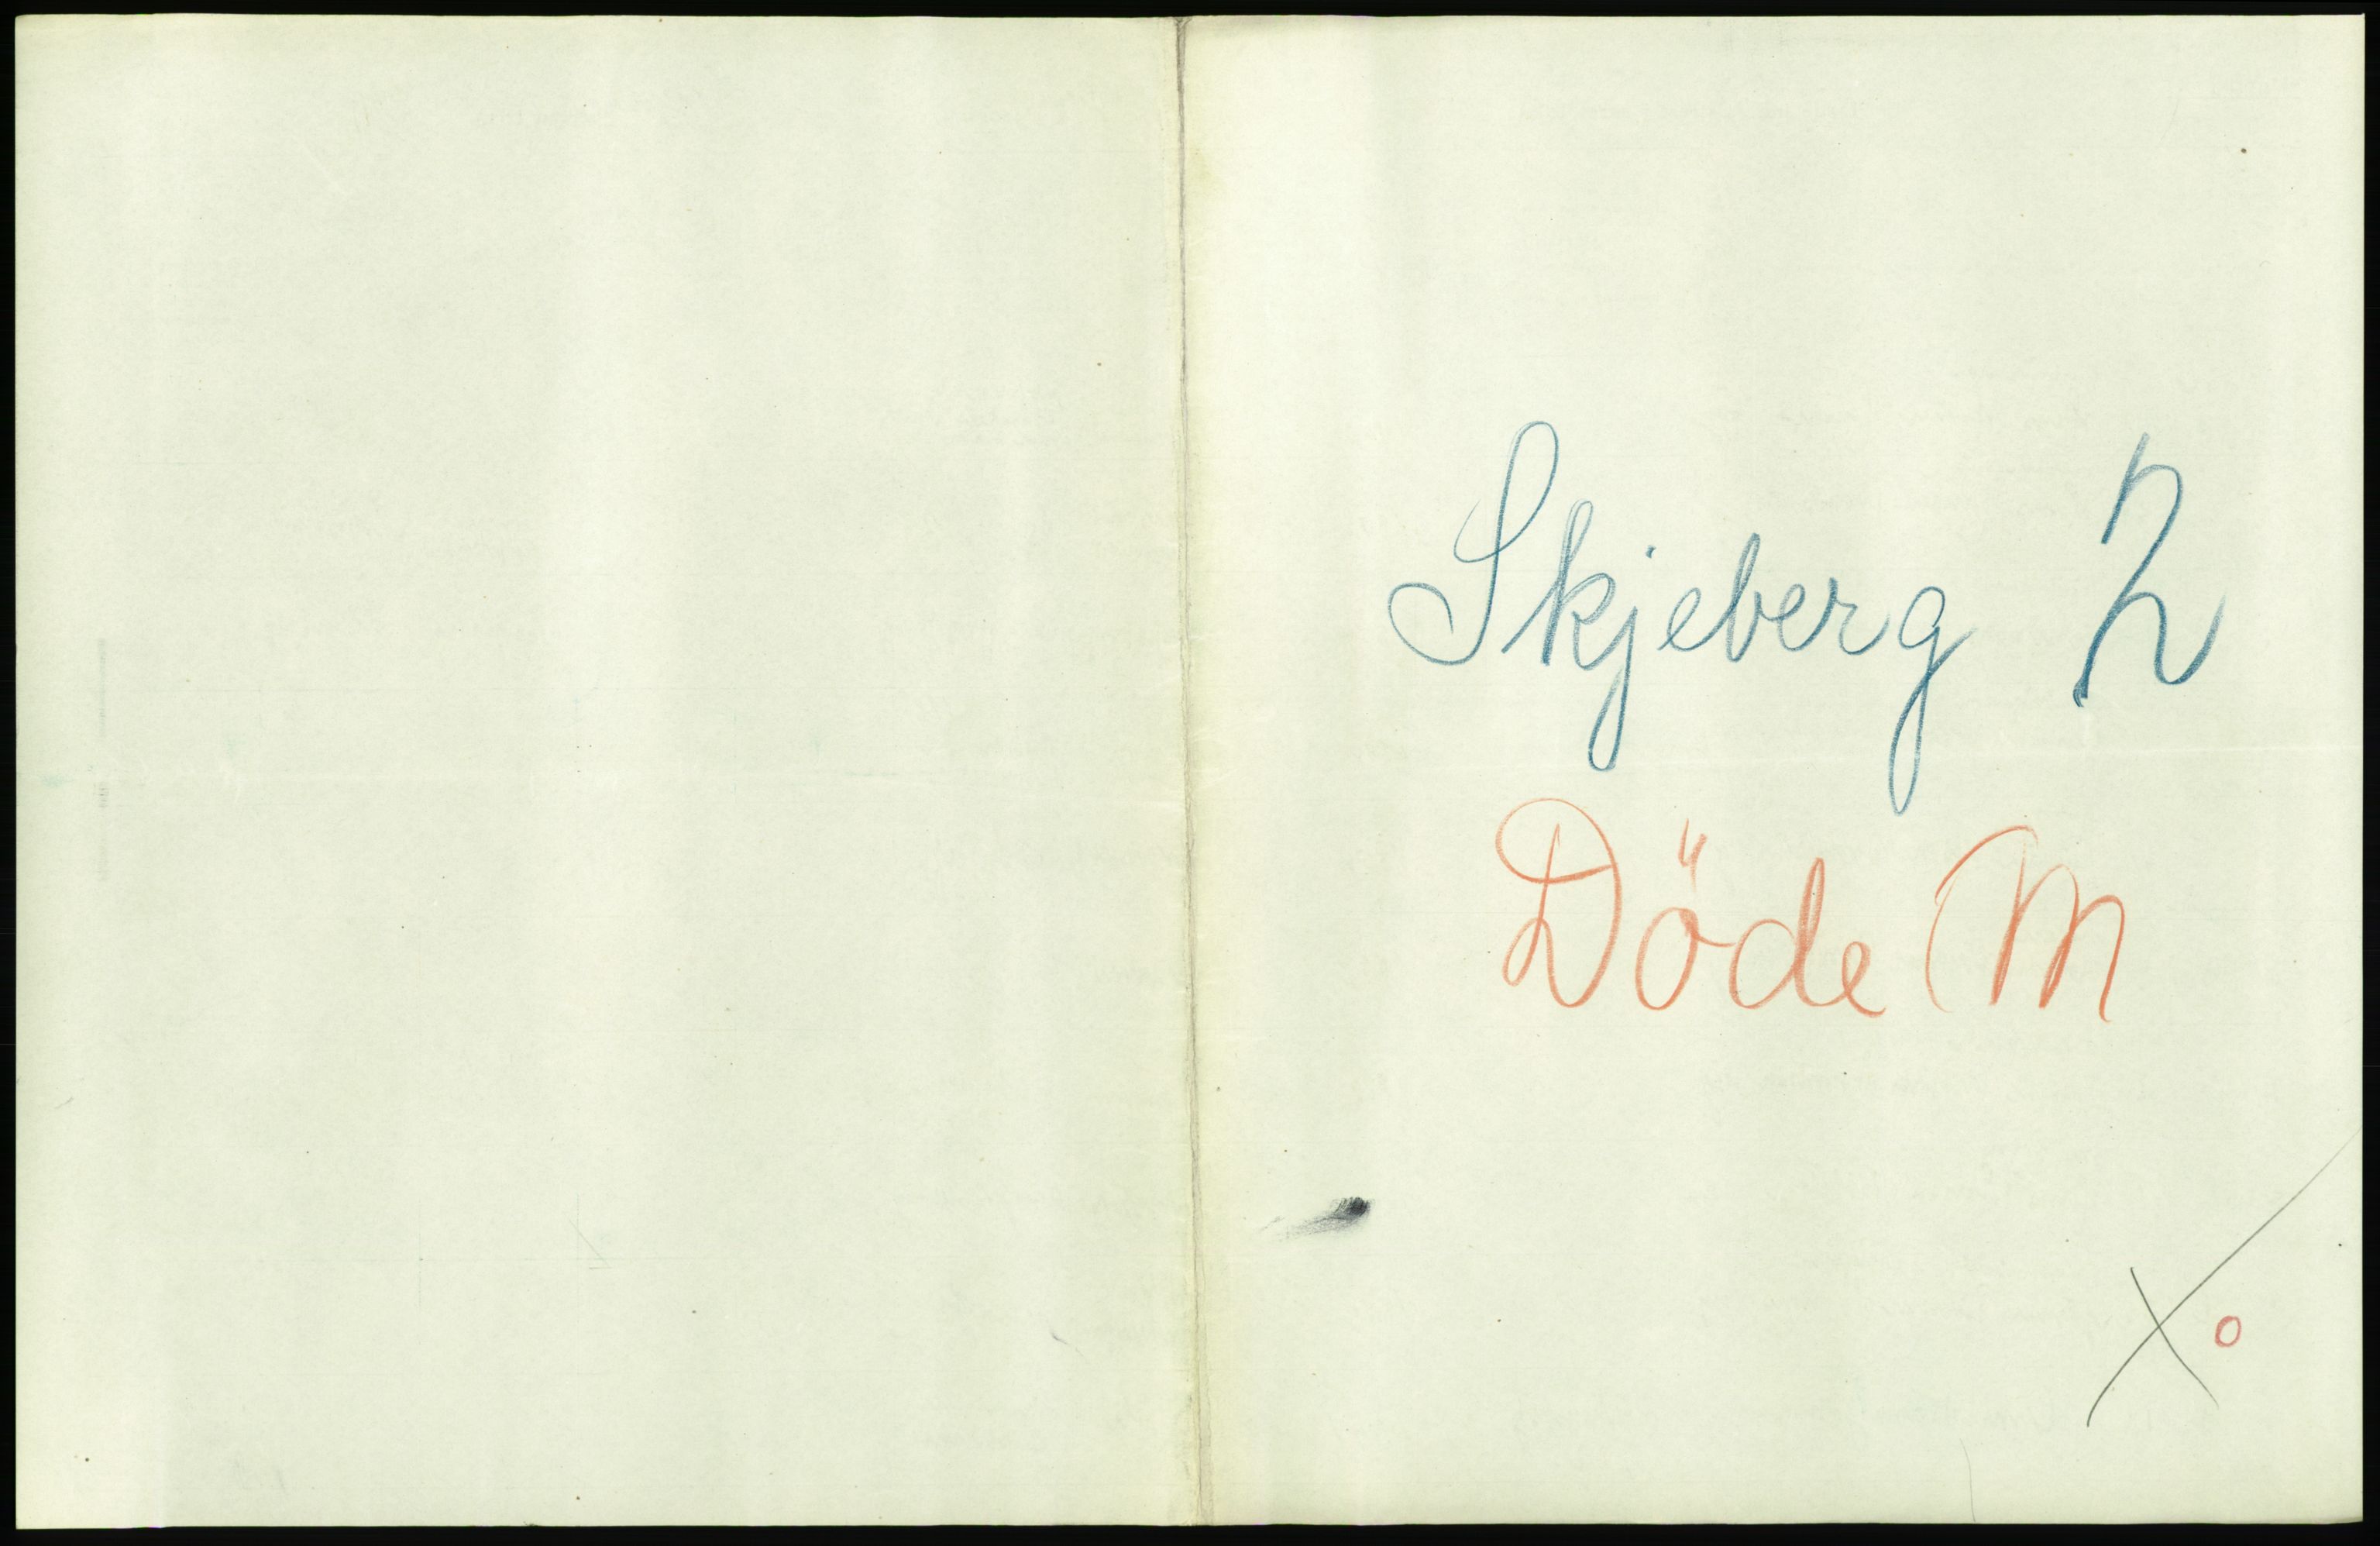 Skjeberg 2
Döde M
X o